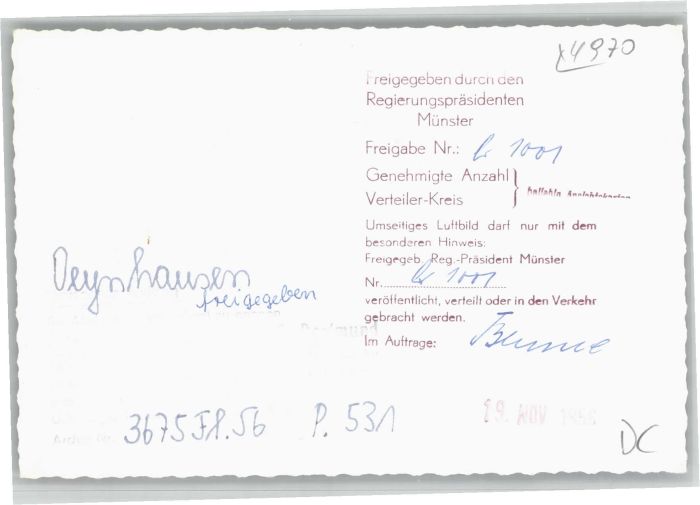 x4970
Freigegeben durch den
Regierungspräsidenten
Münster
Freigabe Nr.: 1001
Genehmigte Anzahl
Verteiler-Kreis
Umseitiges Luftbild darf nur mit dem
besonderen Hinweis:
Freigegeb. Reg.-Präsident Münster
Nr. 1001
veröffentlicht, verteilt oder in den Verkehr
gebracht werden.
Im Auftrage:
Oeynhausen
freigegeben
3675 Fl.56 P. 531
19. NOV 1956
DC